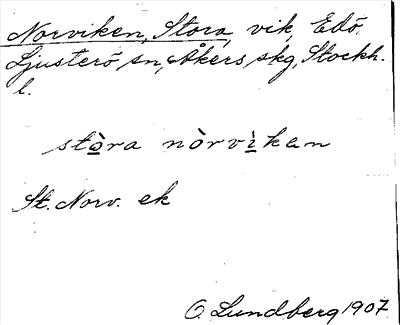 Norviken, Stora, vik, Edö,
Ljusterö sn, Åkers skg, Stockh.
l.
stòra nòrvìkan
St. Norv. ek
O. Lundberg 1907